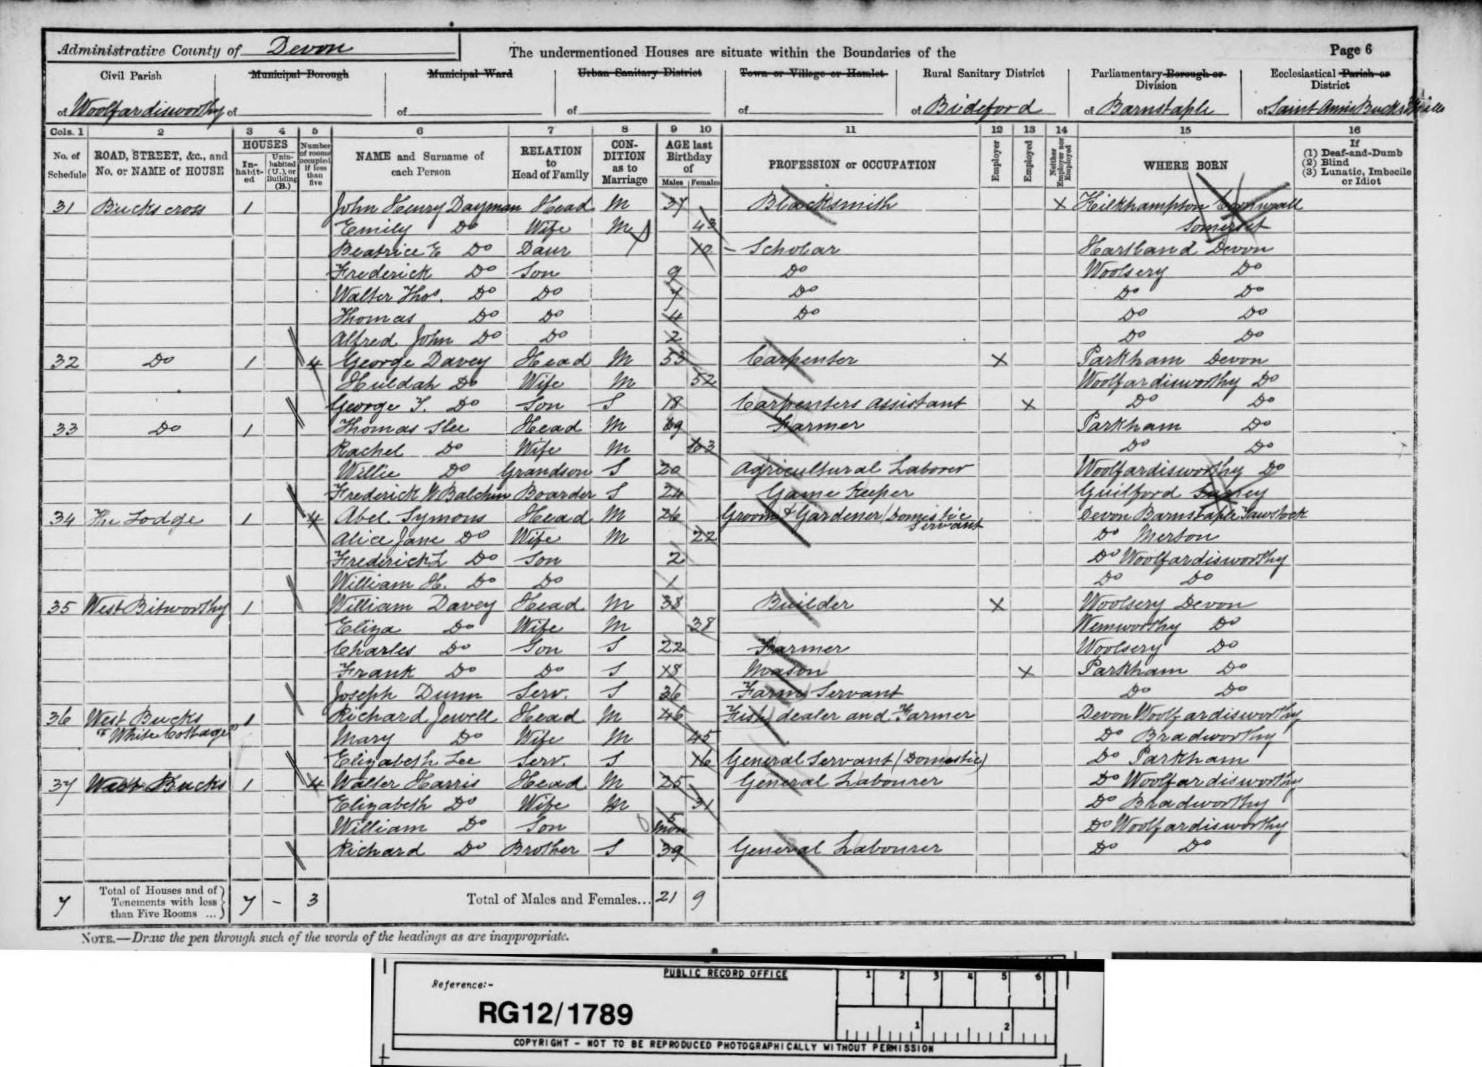 Administrative County of Devon
The undermentioned Houses are situate within the Boundaries of the
Page 6
Civil Parish of Woolfardisworthy
Municipal Borough of
Municipal Ward of
Urban Sanitary District of
Town or Village or Hamlet of
Rural Sanitary District of Bideford
Parliamentary Borough or Division of Barnstaple
Ecclesiastical Parish or District of Saint Anne Bucks Mills
Cols. 1 2 3 4 5 6 7 8 9 10 11 12 13 14 15 16
No. of Schedule
ROAD, STREET, &c., and No. or NAME of HOUSE
HOUSES
In-habit-ed
Unin-habited (U.), or Building (B.)
Number of rooms occupied if less than five
NAME and Surname of each Person
RELATION to Head of Family
CON-DITION as to Marriage
AGE last Birthday of
Males Females
PROFESSION or OCCUPATION
Employer
Employed
Neither Employer nor Employed
WHERE BORN
If
(1) Deaf-and-Dumb
(2) Blind
(3) Lunatic, Imbecile or Idiot
31 Bucks cross 1 John Henry Dayman Head M 37 Blacksmith X Kilkhampton Cornwall
Emily Do Wife M 43 Somerset
Beatrice E Do Daur 10 - Scholar Hartland Devon
Frederick Do Son 9 Do Woolsery Do
Walter Thos. Do Do 7 Do Do Do
Thomas Do Do 4 Do Do Do
Alfred John Do Do 2 Do Do
32 Do 1 4 George Davey Head M 53 Carpenter X Parkham Devon
Huldah Do Wife M 52 Woolfardisworthy Do
George T. Do Son S 18 Carpenters Assistant X Do Do
33 Do 1 Thomas Slee Head M 69 Farmer Parkham Do
Rachel Do Wife M 63 Do Do
Willie Do Grandson S 20 Agricultural Laborer Woolfardisworthy Do
Frederick W Balchin Boarder S 24 Game Keeper Guilford Surrey
34 The Lodge 1 4 Abel Symons Head M 26 Groom & Gardener (Domestic Servant Devon Barnstaple Tawstock
Alice Jane Do Wife M 22 Do Merton
Frederick L Do Son 2 Do Woolfardisworthy
William H. Do Do 1 Do Do
35 West Bitworthy 1 William Davey Head M 38 Builder X Woolsery Devon
Eliza Do Wife M 38 Wemworthy Do
Charles Do Son S 22 Farmer Woolsery Do
Frank Do Do S 18 Mason X Parkham Do
Joseph Dunn Serv. S 36 Farm Servant Do Do
36 West Bucks "White Cottage" 1 Richard Jewell Head M 46 Fish dealer and Farmer Devon Woolfardisworthy
Mary Do Wife M 45 Do Bradworthy
Elizabeth Lee Serv. S 16 General Servant (Domestic) Do Parkham
37 West Bucks 1 4 Walter Harris Head M 25 General Labourer Do Woolfardisworthy
Elizabeth Do Wife M 31 Do Bradworthy
William Do Son 5 mon Do Woolfardisworthy
Richard Do Brother S 39 General Labourer Do Do
7 Total of Houses and of Tenements with less than Five Rooms ... 7 - 3 Total of Males and Females... 21 9
NOTE.—Draw the pen through such of the words of the headings as are inappropriate.
PUBLIC RECORD OFFICE
1 2 3 4 5 6
Reference:-
RG12/1789
1 2
COPYRIGHT - NOT TO BE REPRODUCED PHOTOGRAPHICALLY WITHOUT PERMISSION